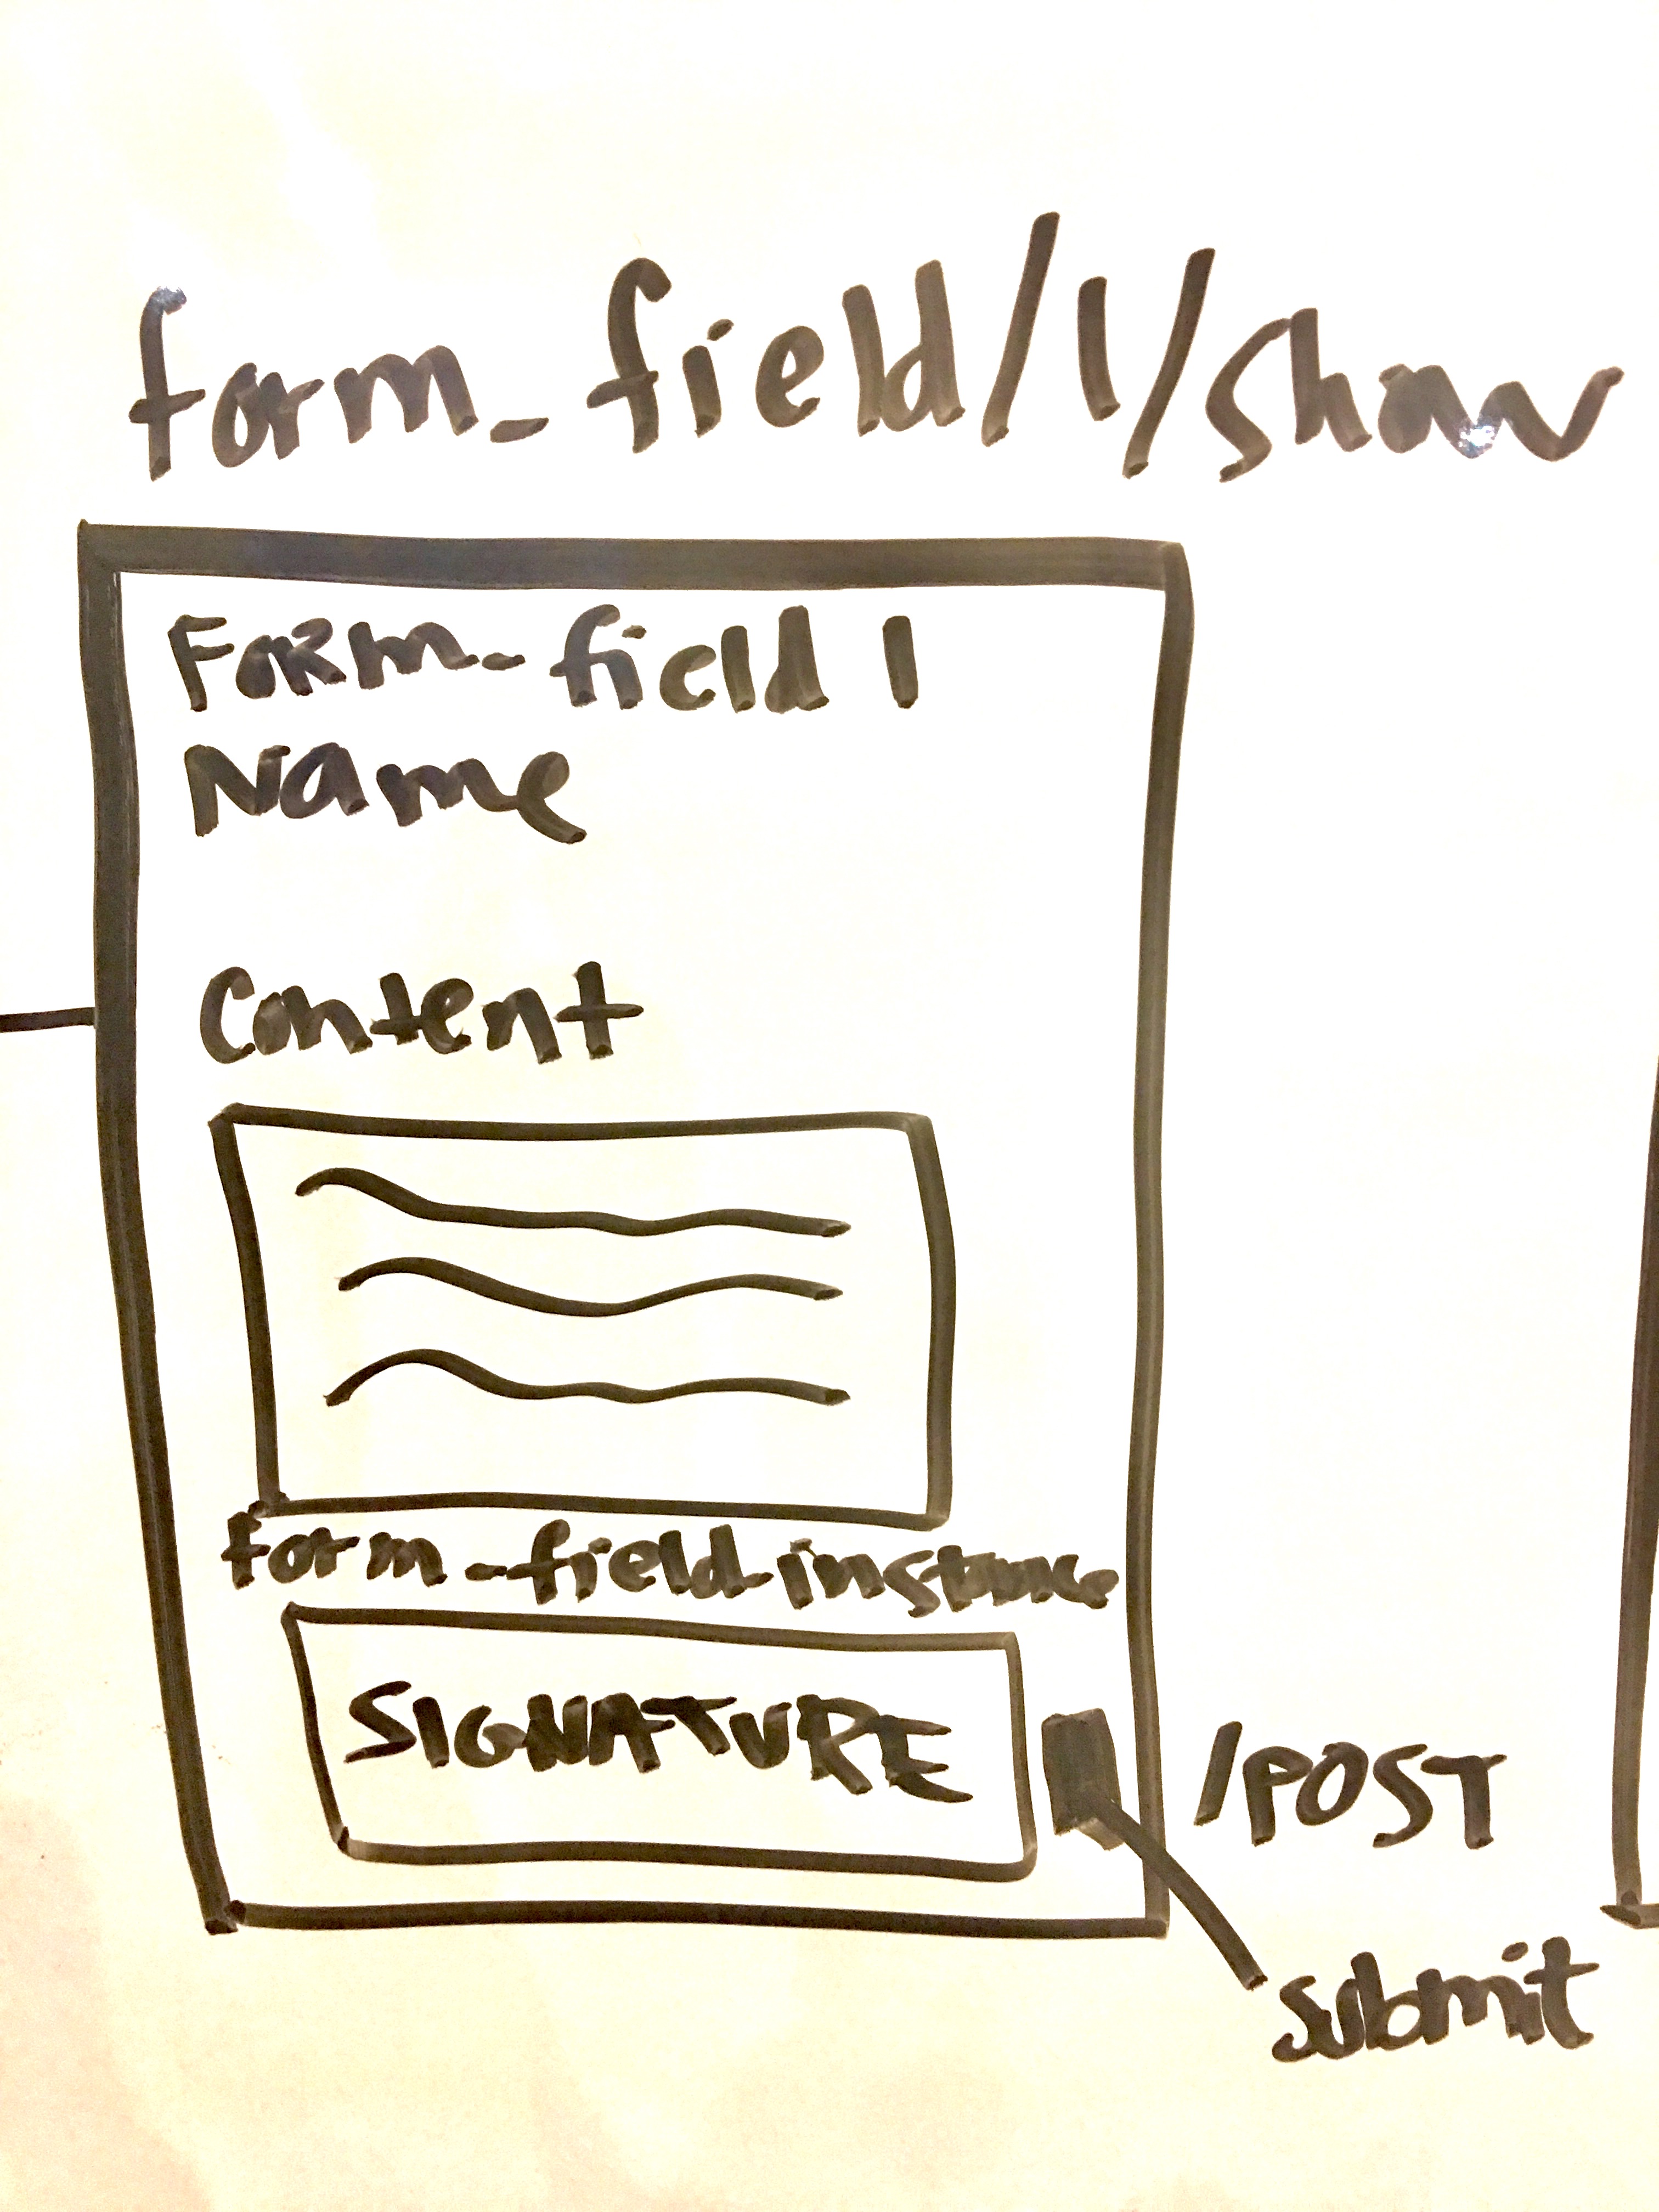 form_field/1/show
Form_field 1
Name
Content
form_field_instance
SIGNATURE
/POST
submit